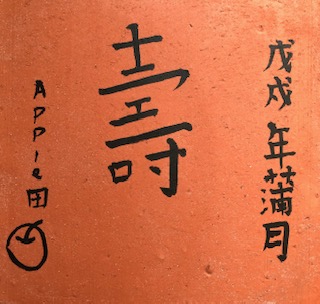 戊戌年蒲月
壽
APPle田